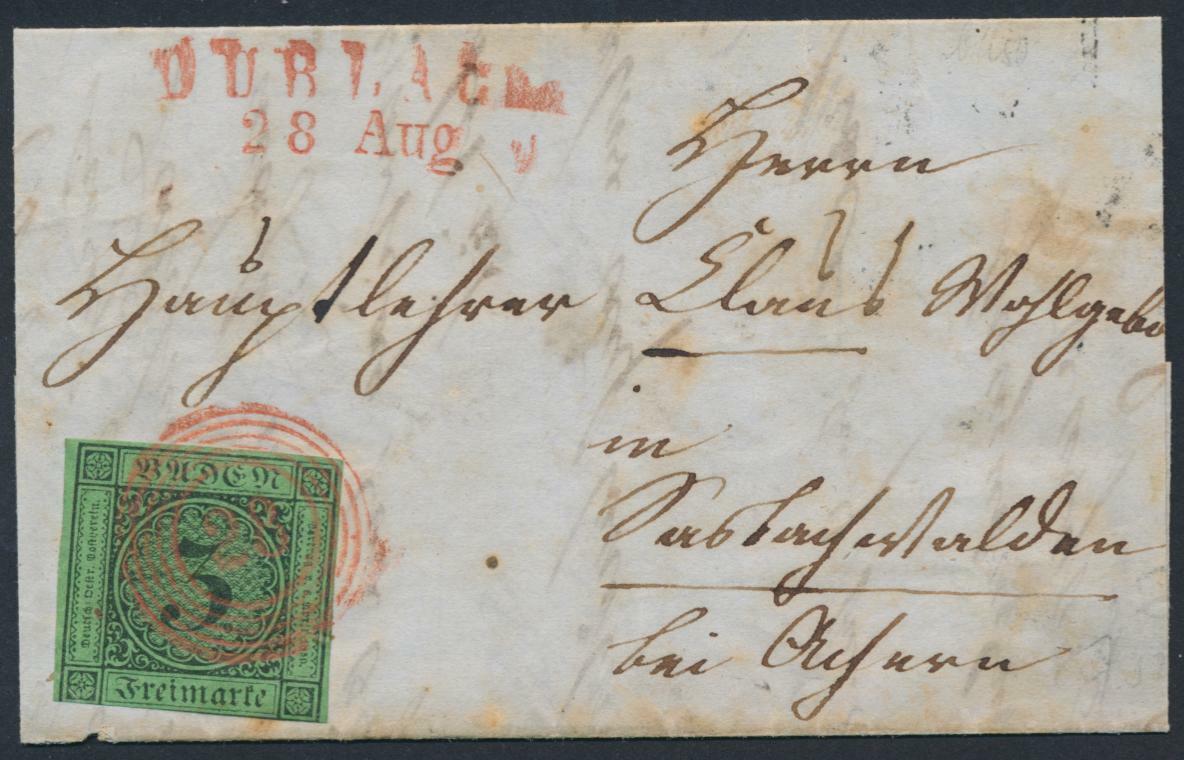 DURLACH
28 Aug
Herrn
Hauptlehrer Claus Wohlgebo
in
Sasbachwalden
bei Achern
BADEN
Deutsch. Oestr. Postverein.
3
Freimarke